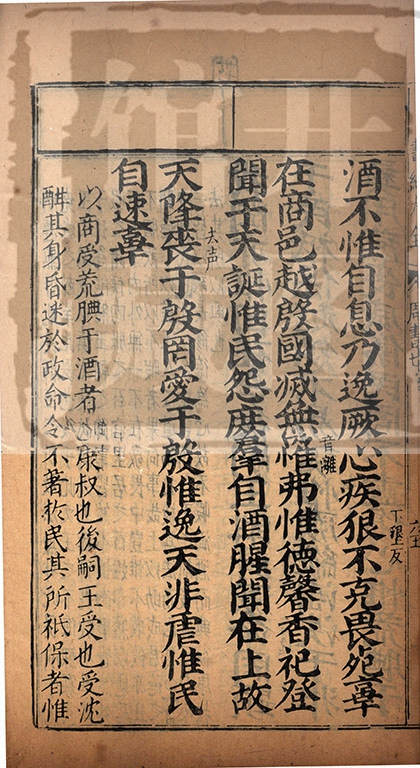 酒不惟自息乃逸厥心疾狠不克畏死辜
下墾反
在商邑越殷國滅無罹弗惟徳馨香祀登
音離
聞于天誕惟民怨庶羣自酒腥聞在上故
天降喪于殷罔愛于殷惟逸天非虐惟民
去声
自速辜
以商受荒腆于酒者康叔也後嗣王受也受沈
酣其身昏迷於政命令不著於民其所祗保者惟